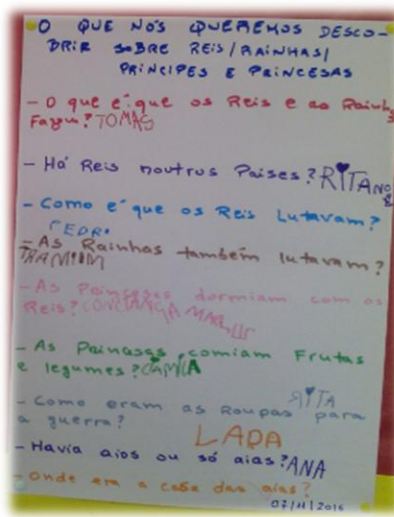 O QUE NÓS QUEREMOS DESCO-
BRIR SOBRE REIS/RAINHAS/
PRÍNCIPES E PRINCESAS
- O que é que os Reis e as Rainhas
Fazem? TOMÁS
- Há Reis noutros Países? RITA
- Como é que os Reis Lutavam?
PEDRO
- As Rainhas também lutavam?
- As Princesas dormiam com os
Reis?
- As Princesas comiam Frutas
e legumes? CAMILA
RITA
- Como eram as Roupas para
a guerra?
LARA
- Havia aios ou só aias? ANA
- Onde era a casa das aias?
07/11/2016